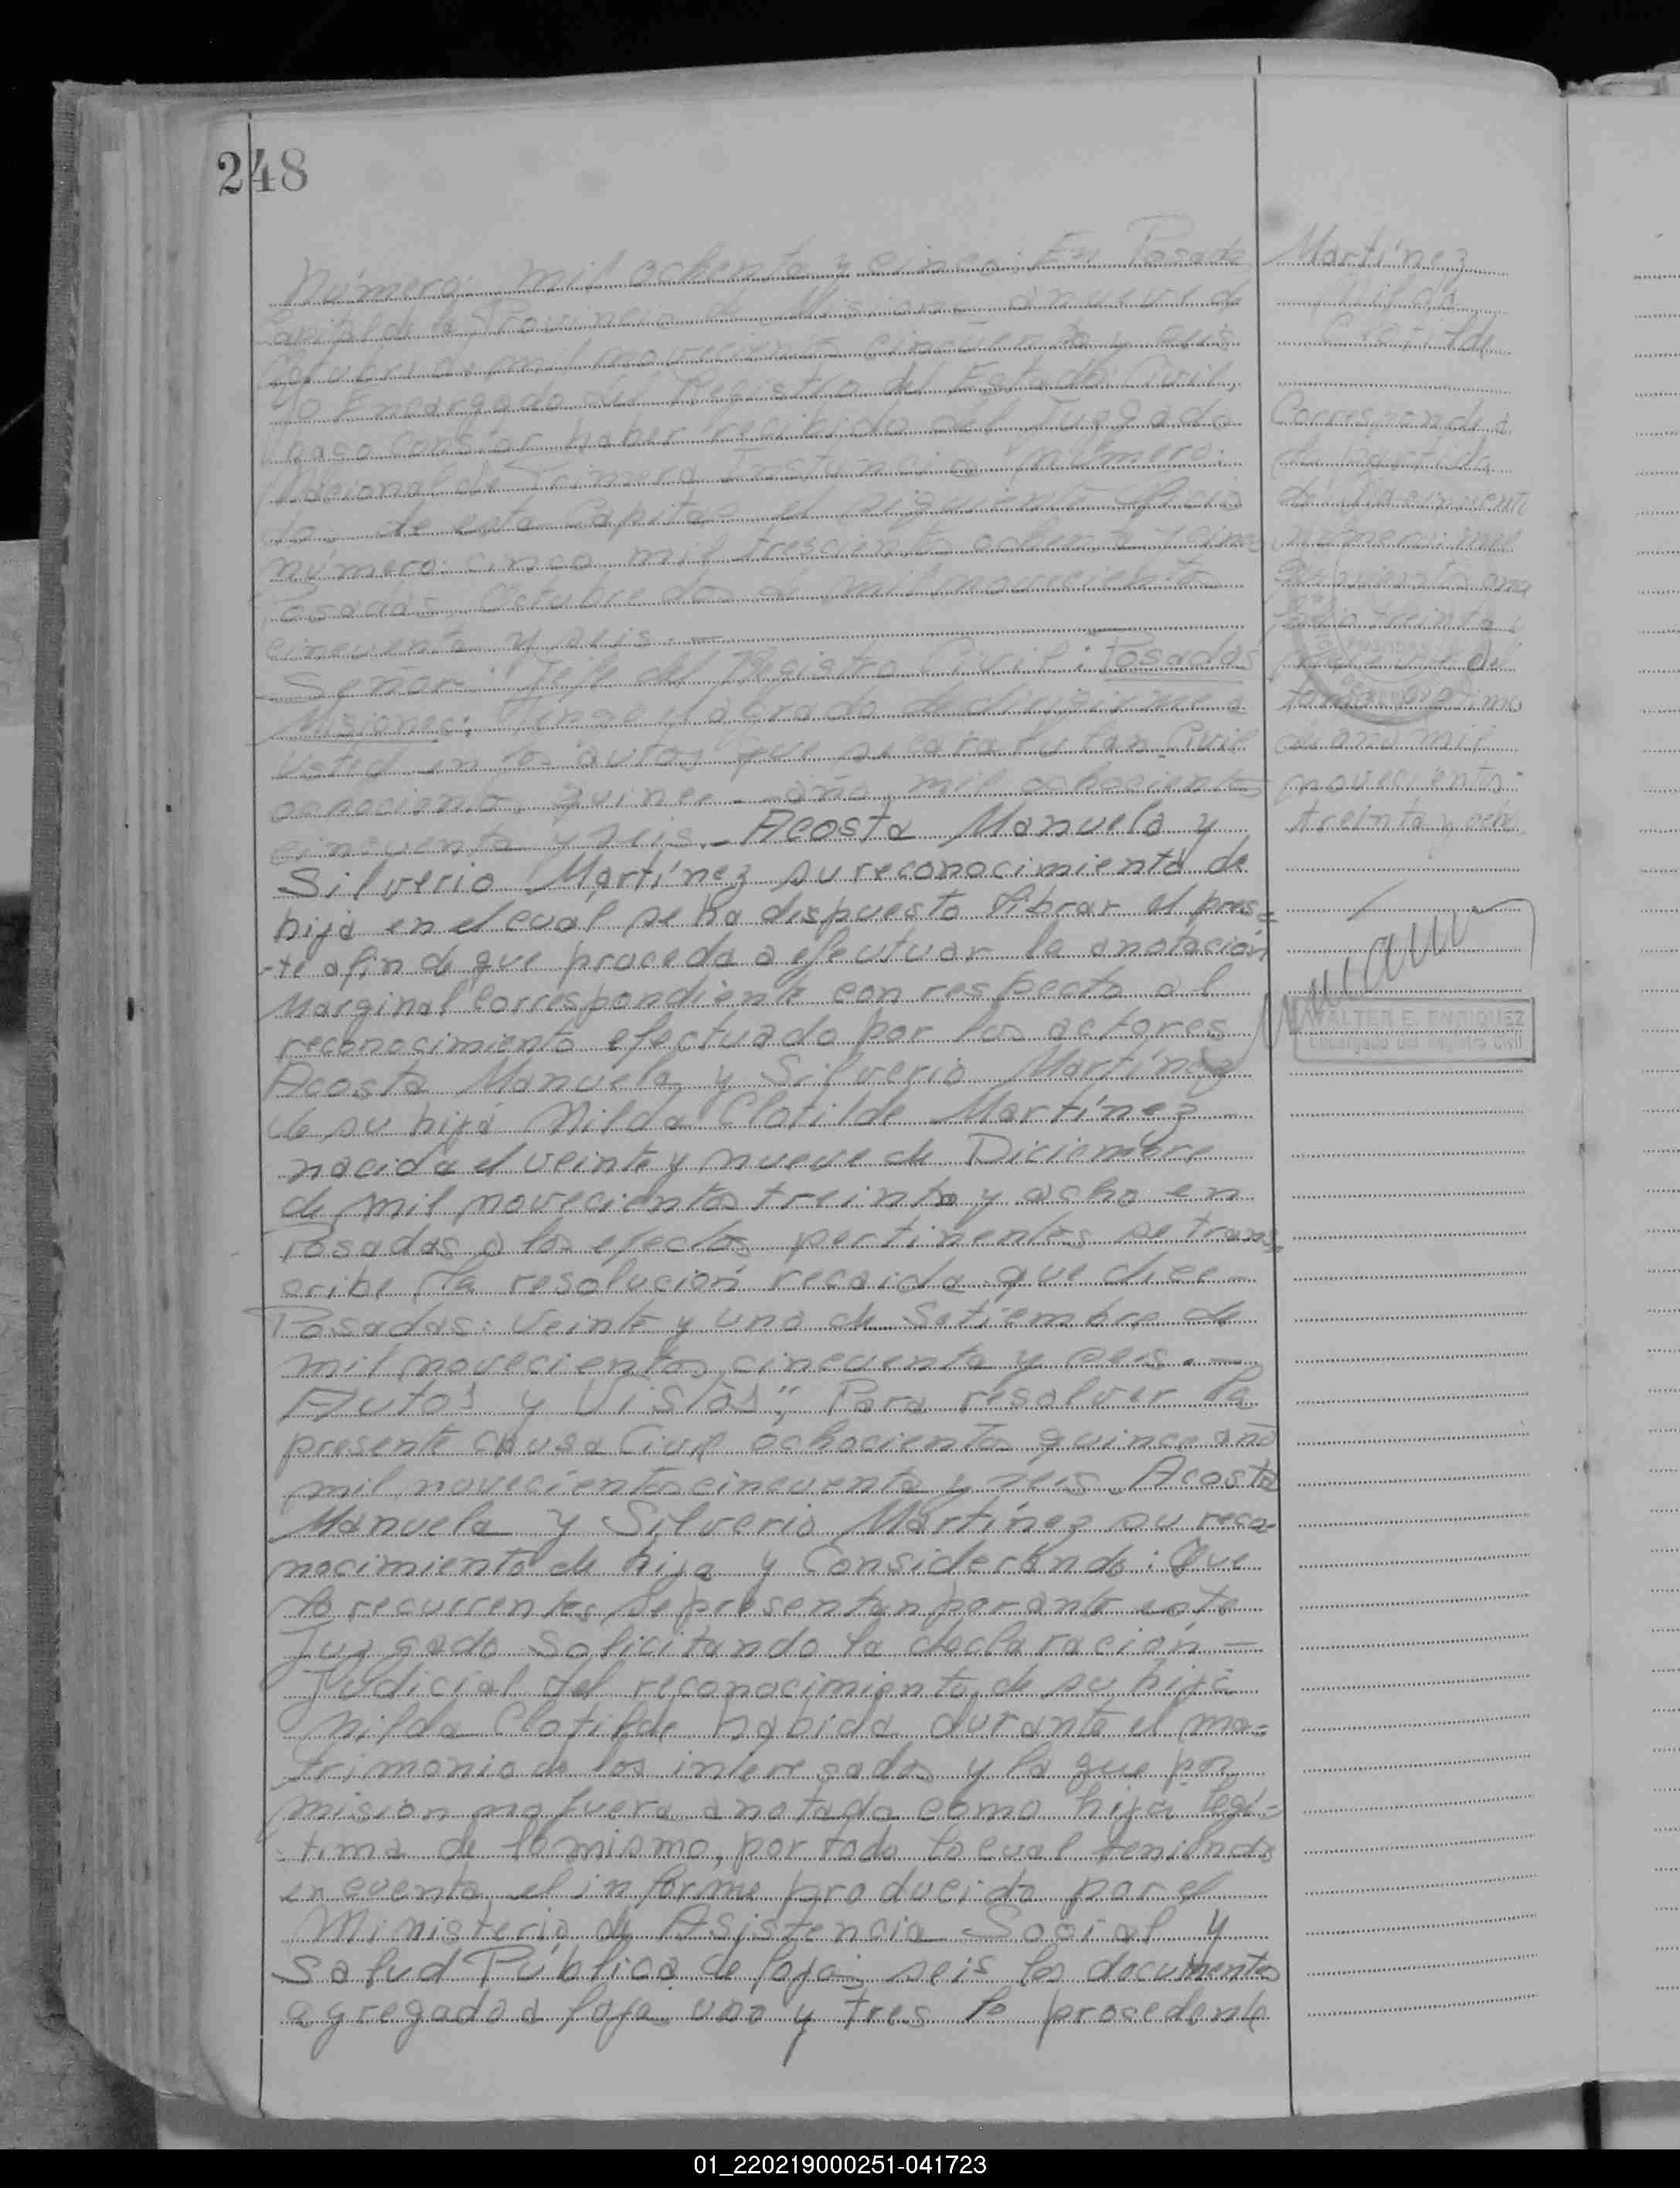 248
Número: mil ochenta y cinco: En Posadas
Capital de la Provincia de Misiones a nueve de
Octubre de mil novecientos cincuenta y seis
Yo Encargado del Registro del Estado Civil,
hago constar haber recibido del Juzgado
Nacional de Primera Instancia número:
dos de esta Capital el siguiente oficio
número: cinco mil trescientos ochenta y cinco
Posadas Octubre dos de mil novecientos
cincuenta y seis.—
Señor: Jefe del Registro Civil: Posadas
Misiones: Tengo el agrado de dirigirme a
Usted en los autos que se caratulan Civil
ochocientos quince - año mil ochocientos
cincuenta y seis.- Acosta Manuela y
Silverio Martínez su reconocimiento de
hija en el cual se ha dispuesto librar el pres=
-te a fin de que proceda a efectuar la anotación
Marginal Correspondiente con respecto al
reconocimiento efectuado por los actores
Acosta Manuela y Silverio Martínez
de su hija Nilda Clotilde Martínez
nacida el veinte y nueve de Diciembre
de mil novecientos treinta y ocho en
Posadas a los efectos pertinentes se trans=
cribe la resolución recaida que dice—
Posadas: Veinte y uno de Setiembre de
mil novecientos cincuenta y seis.—
Autos y Vistos"; Para resolver la
presente causa Civil ochocientos quince año
mil novecientos cincuenta y seis. Acosta
Manuela y Silverio Martínez su reco-
nocimiento de hija y Considerando: Que
los recurrentes se presentan por ante este
Juzgado Solicitando la declaración—
Judicial del reconocimiento de su hija
Nilda Clotilde habida durante el ma=
trimonio de los interesados y la que por
misión no fuera anotada como hija legí=
tima de lo mismo, por todo lo cual teniendo
en cuenta el informe producido por el
Ministerio de Asistencia Social y
Salud Pública de foja seis los documentos
agregados a foja uno y tres lo prosedente
Martínez
Nilda
Clotilde
Corresponde a
la partida
de Nacimiento
número: mil
quinientos una
folio treinta
del
tomo septimo
del ano mil
novecientos
treinta y ocho
WALTER E. ENRIQUEZ
Encargado del Registro Civil
01_220219000251-041723